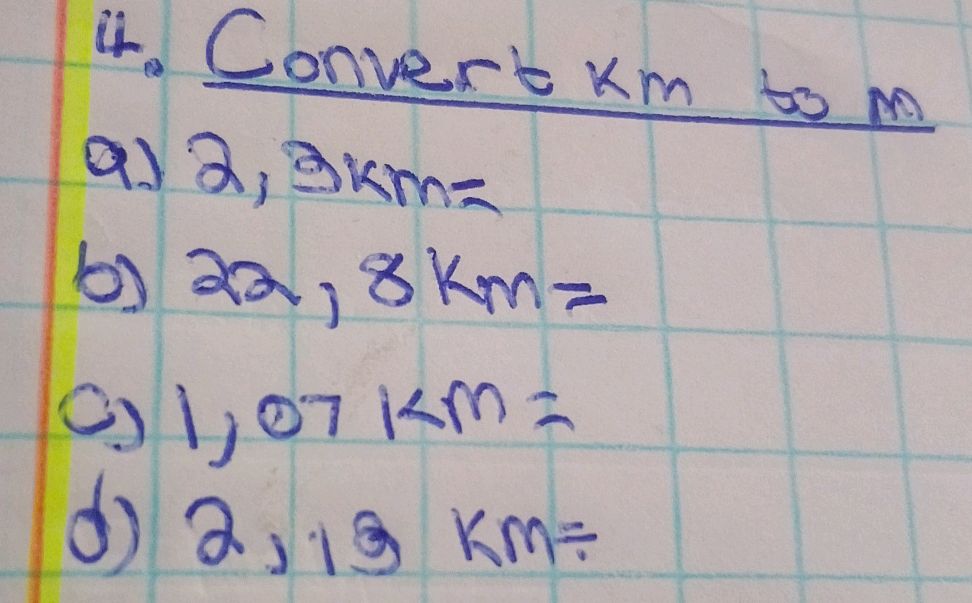 4. Convert km to m
a) 2,3km=
b) 22,8km=
c) 1,07km=
d) 2,13 km=